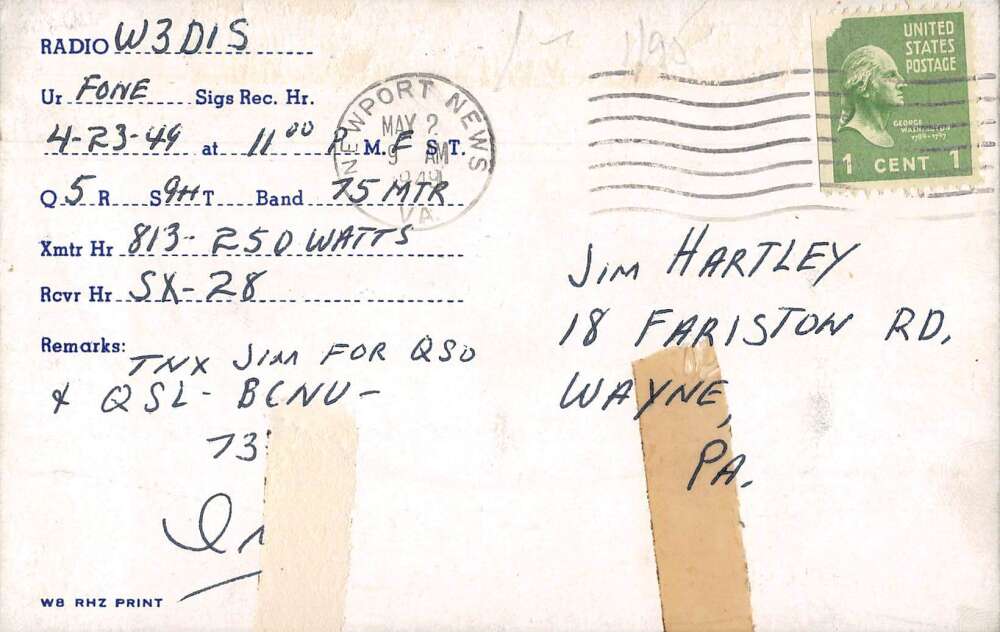 RADIO W3DIS
Ur FONE Sigs Rec. Hr.
4-23-49 at 11 00 P M. E S. T.
Q 5 R S 9+ T Band 75 MTR
Xmtr Hr 813- 250 WATTS
Rcvr Hr SX-28
Remarks:
TNX JIM FOR QSO
& QSL- BCNU-
73
W8 RHZ PRINT
NEWPORT NEWS
MAY 2
9 AM
1949
VA.
UNITED
STATES
POSTAGE
GEORGE
WASHINGTON
1789-1797
1 CENT 1
JIM HARTLEY
18 FARISTON RD.
WAYNE,
PA.